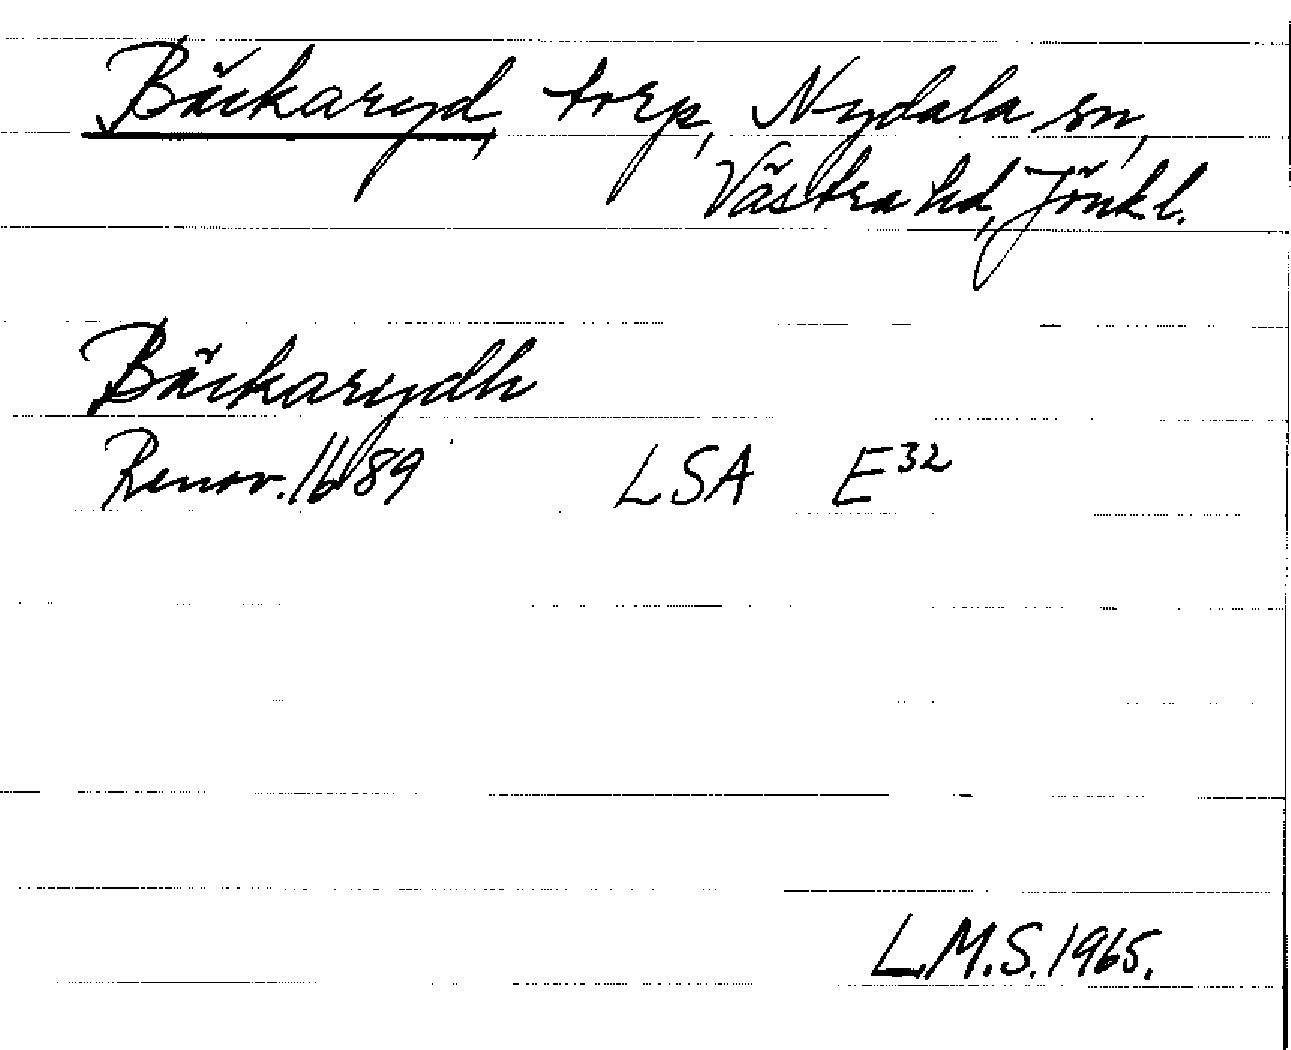 Bäckaryd, torp, Nydala sn,
Västra hd, Jönk l.
Bäckarydh
Renov. 1689 LSA E32
L.M.S. 1965.